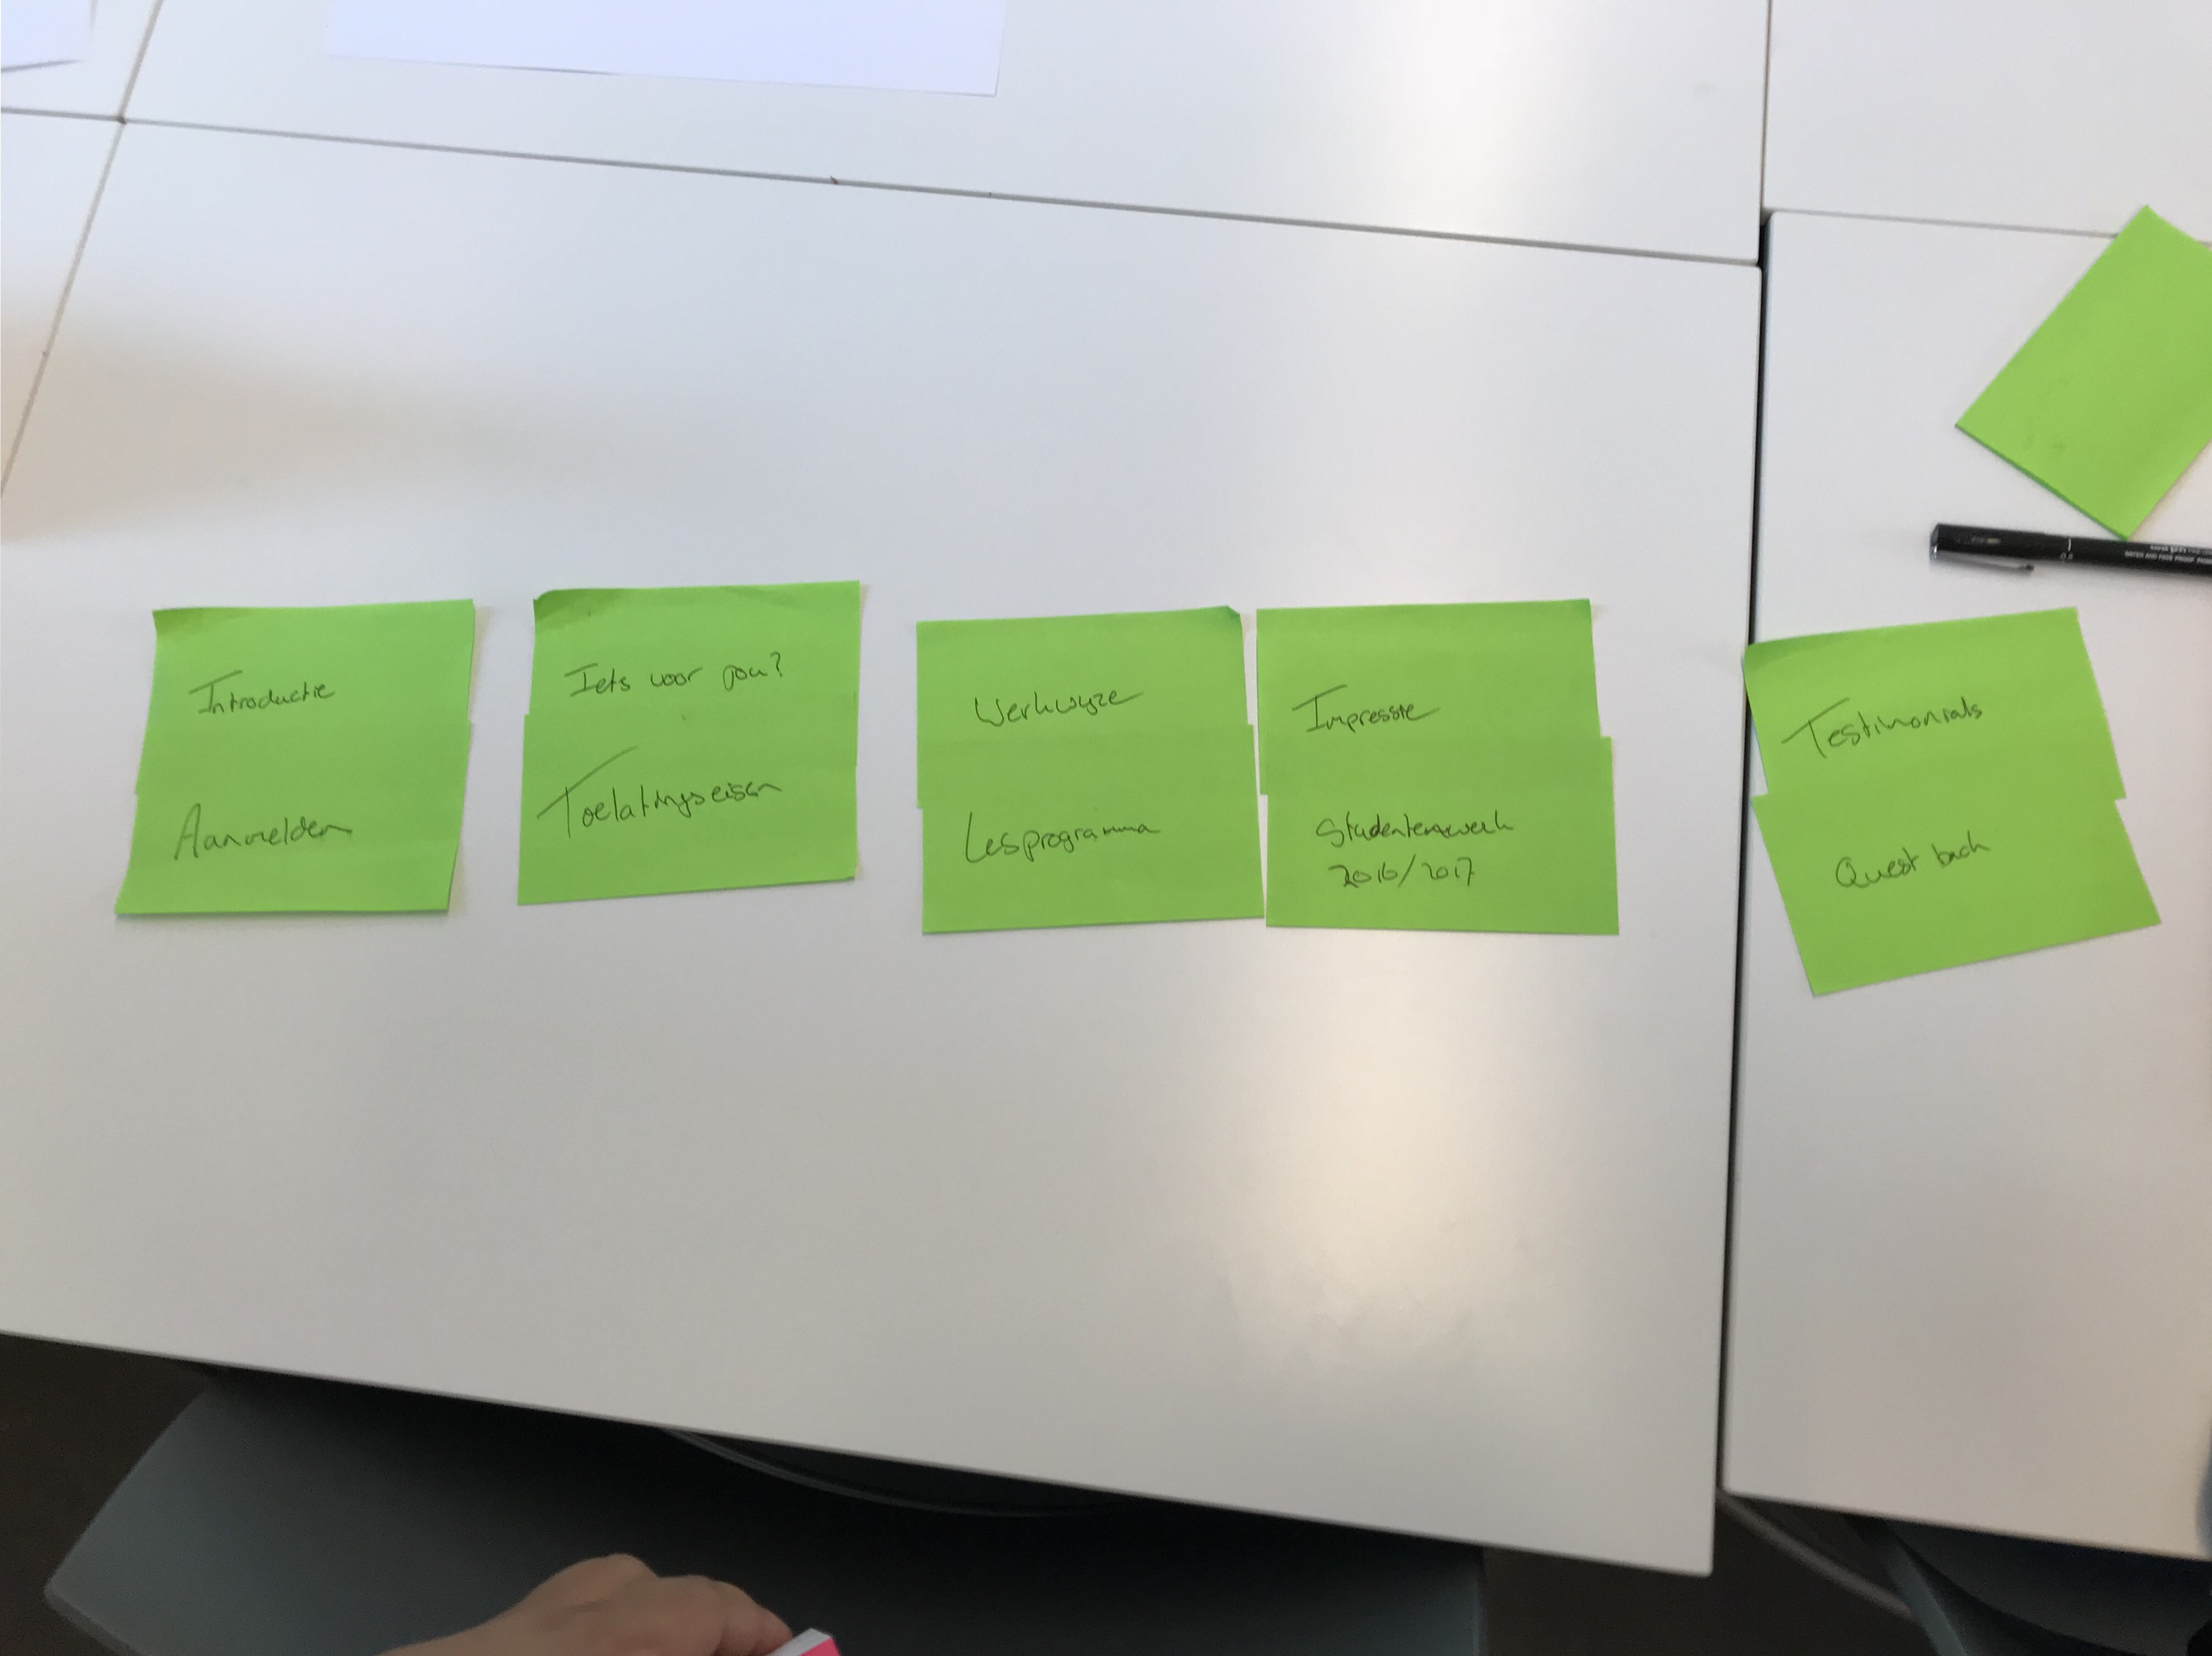 Introductie
Aanmelden
Iets voor jou?
Toelatingseisen
Werkwyze
Lesprogramma
Impressie
Studentenwerk
2016/2017
Testimonials
Quest back